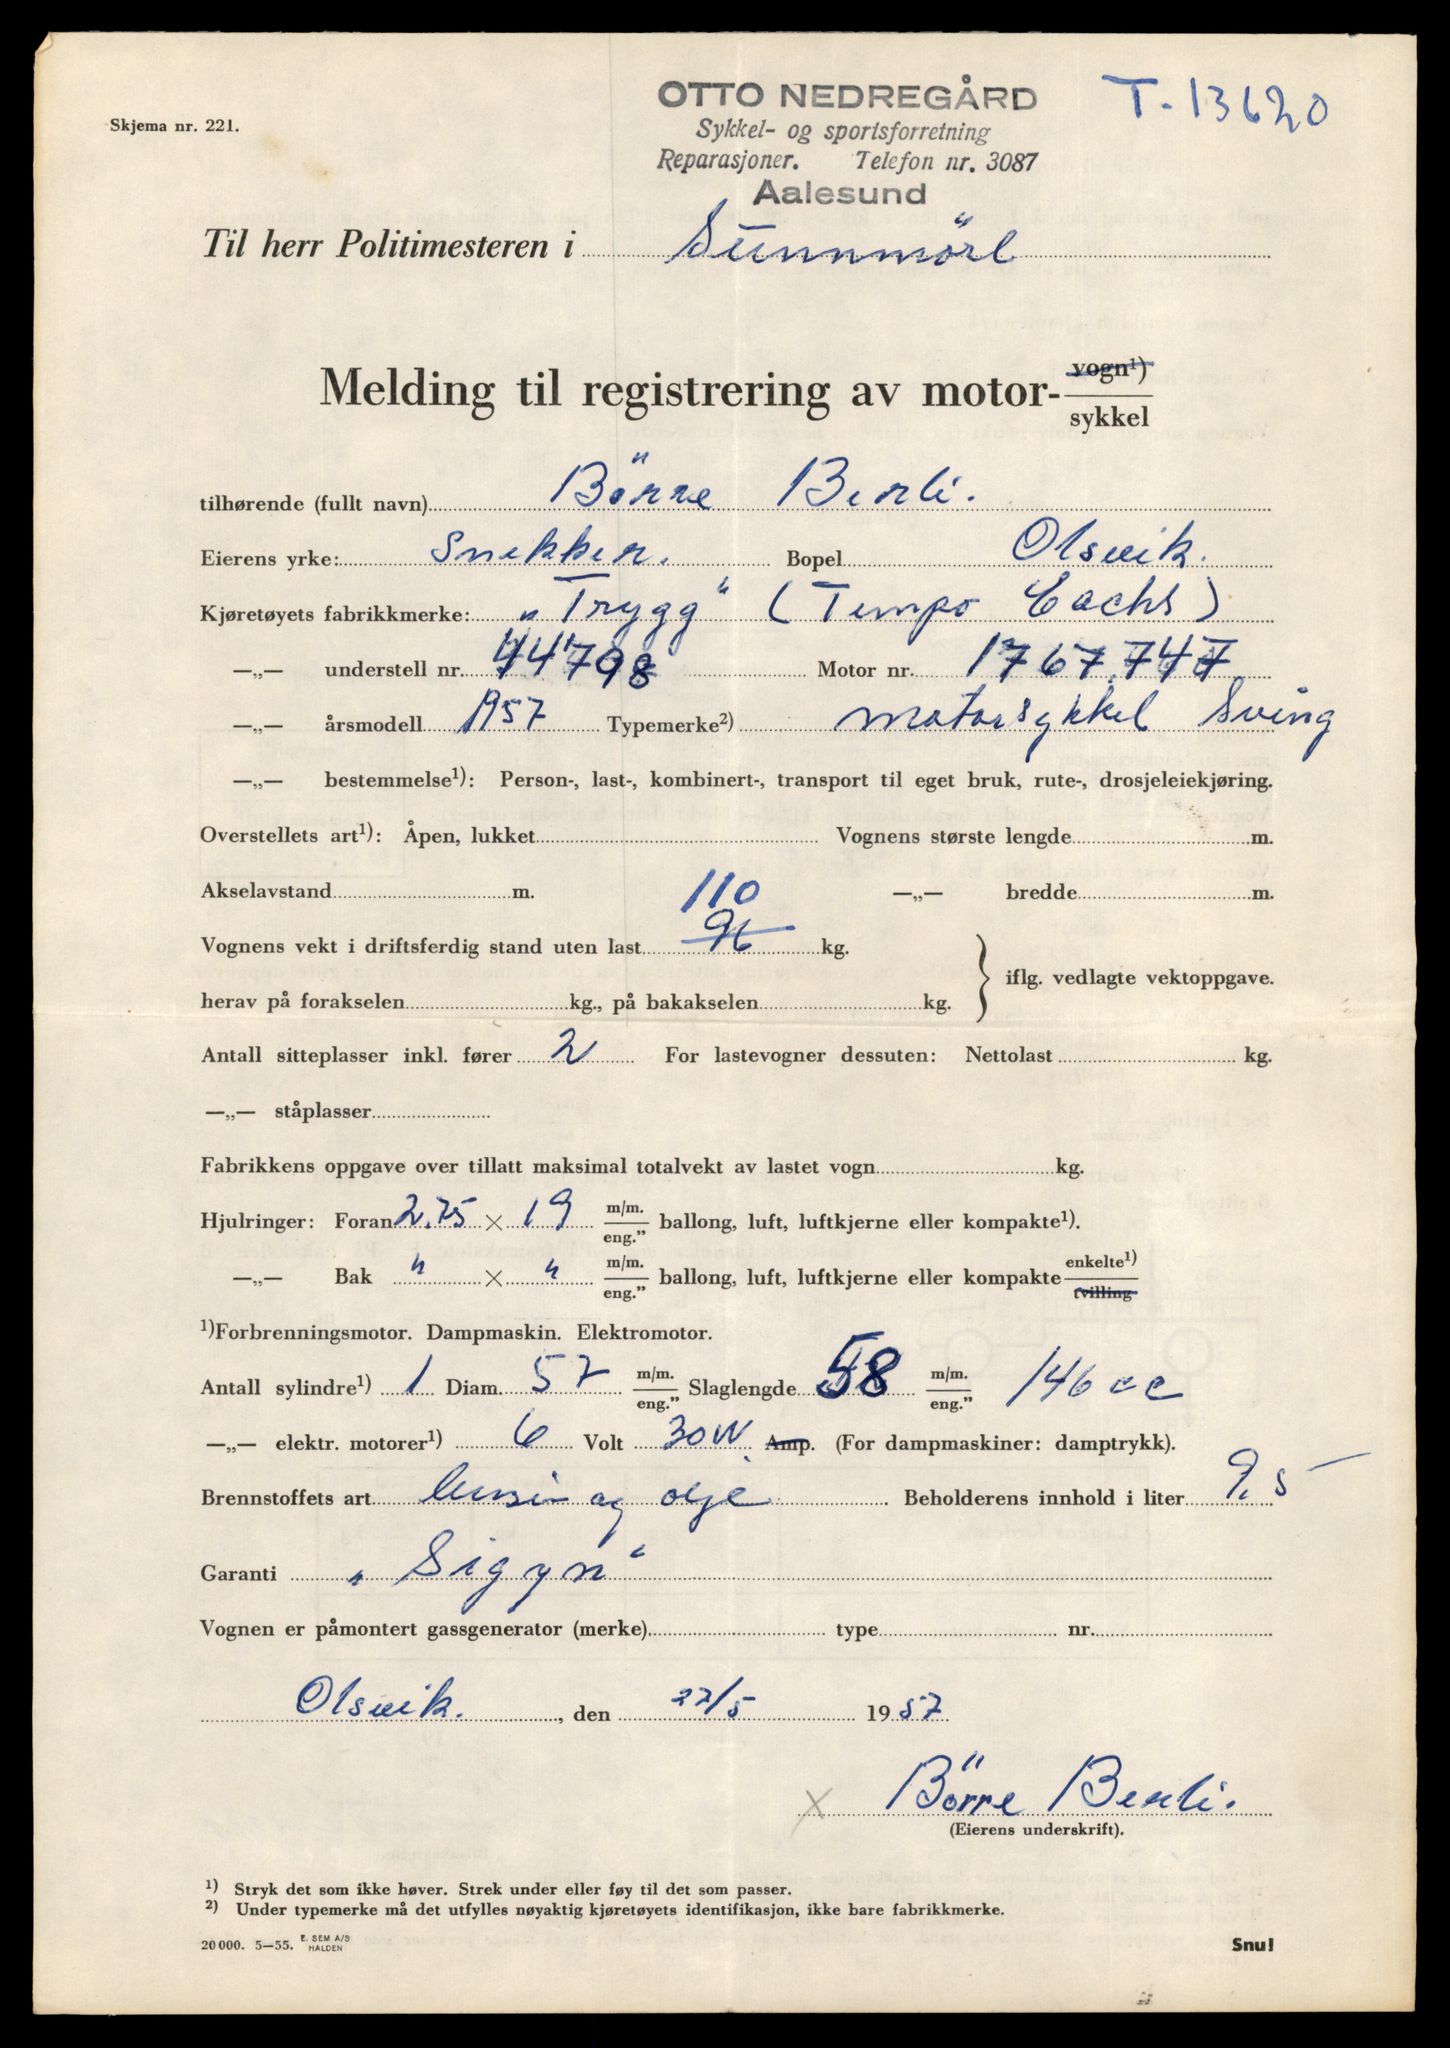 OTTO NEDREGÅRD
T-13620
Skjema nr. 221.
Sykkel- og sportsforretning
Reparasjoner. Telefon nr. 3087
Aalesund
Til herr Politimesteren i Sunnmöre
Melding til registrering av motor- vogn¹) / sykkel
tilhørende (fullt navn) Börre Berli.
Eierens yrke: Snekker. Bopel Olsvik.
Kjøretøyets fabrikkmerke: „Trygg" (Tempo Sachs)
—„— understell nr. 44798 Motor nr. 1767.747
—„— årsmodell 1957 Typemerke²) motorsykkel Sving
—„— bestemmelse¹): Person-, last-, kombinert-, transport til eget bruk, rute-, drosjeleiekjøring.
Overstellets art¹): Åpen, lukket Vognens største lengde m.
Akselavstand m. —„— bredde m.
110
Vognens vekt i driftsferdig stand uten last 96 kg.
iflg. vedlagte vektoppgave.
herav på forakselen kg., på bakakselen kg.
Antall sitteplasser inkl. fører 2 For lastevogner dessuten: Nettolast kg.
—„— ståplasser
Fabrikkens oppgave over tillatt maksimal totalvekt av lastet vogn kg.
Hjulringer: Foran 2.75 × 19 m/m. / eng." ballong, luft, luftkjerne eller kompakte¹).
—„— Bak " × " m/m. / eng." ballong, luft, luftkjerne eller kompakte enkelte¹) / tvilling
¹)Forbrenningsmotor. Dampmaskin. Elektromotor.
Antall sylindre¹) 1 Diam. 57 m/m. / eng." Slaglengde 58 m/m. / eng." 146 cc
—„— elektr. motorer¹) 6 Volt 30W. Amp. (For dampmaskiner: damptrykk).
Brennstoffets art bensin og olje Beholderens innhold i liter 9,5
Garanti „Sigyn"
Vognen er påmontert gassgenerator (merke) type nr.
Olsvik., den 27/5 1957
× Börre Berli.
(Eierens underskrift).
¹) Stryk det som ikke høver. Strek under eller føy til det som passer.
²) Under typemerke må det utfylles nøyaktig kjøretøyets identifikasjon, ikke bare fabrikkmerke.
20 000. 5—55. E. SEM A/S HALDEN
Snu!